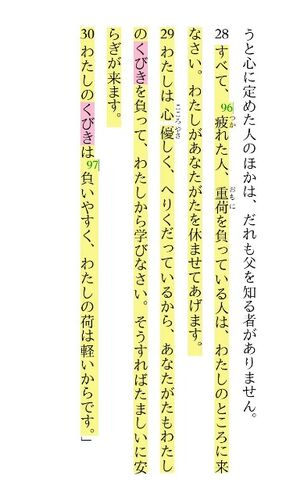 うと心に定めた人のほかは、だれも父を知る者がありません。
28 すべて、96疲れた人、重荷を負っている人は、わたしのところに来
なさい。わたしがあなたがたを休ませてあげます。
29 わたしは心優しく、へりくだっているから、あなたがたもわたし
のくびきを負って、わたしから学びなさい。そうすればたましいに安
らぎが来ます。
30 わたしのくびきは97負いやすく、わたしの荷は軽いからです。」